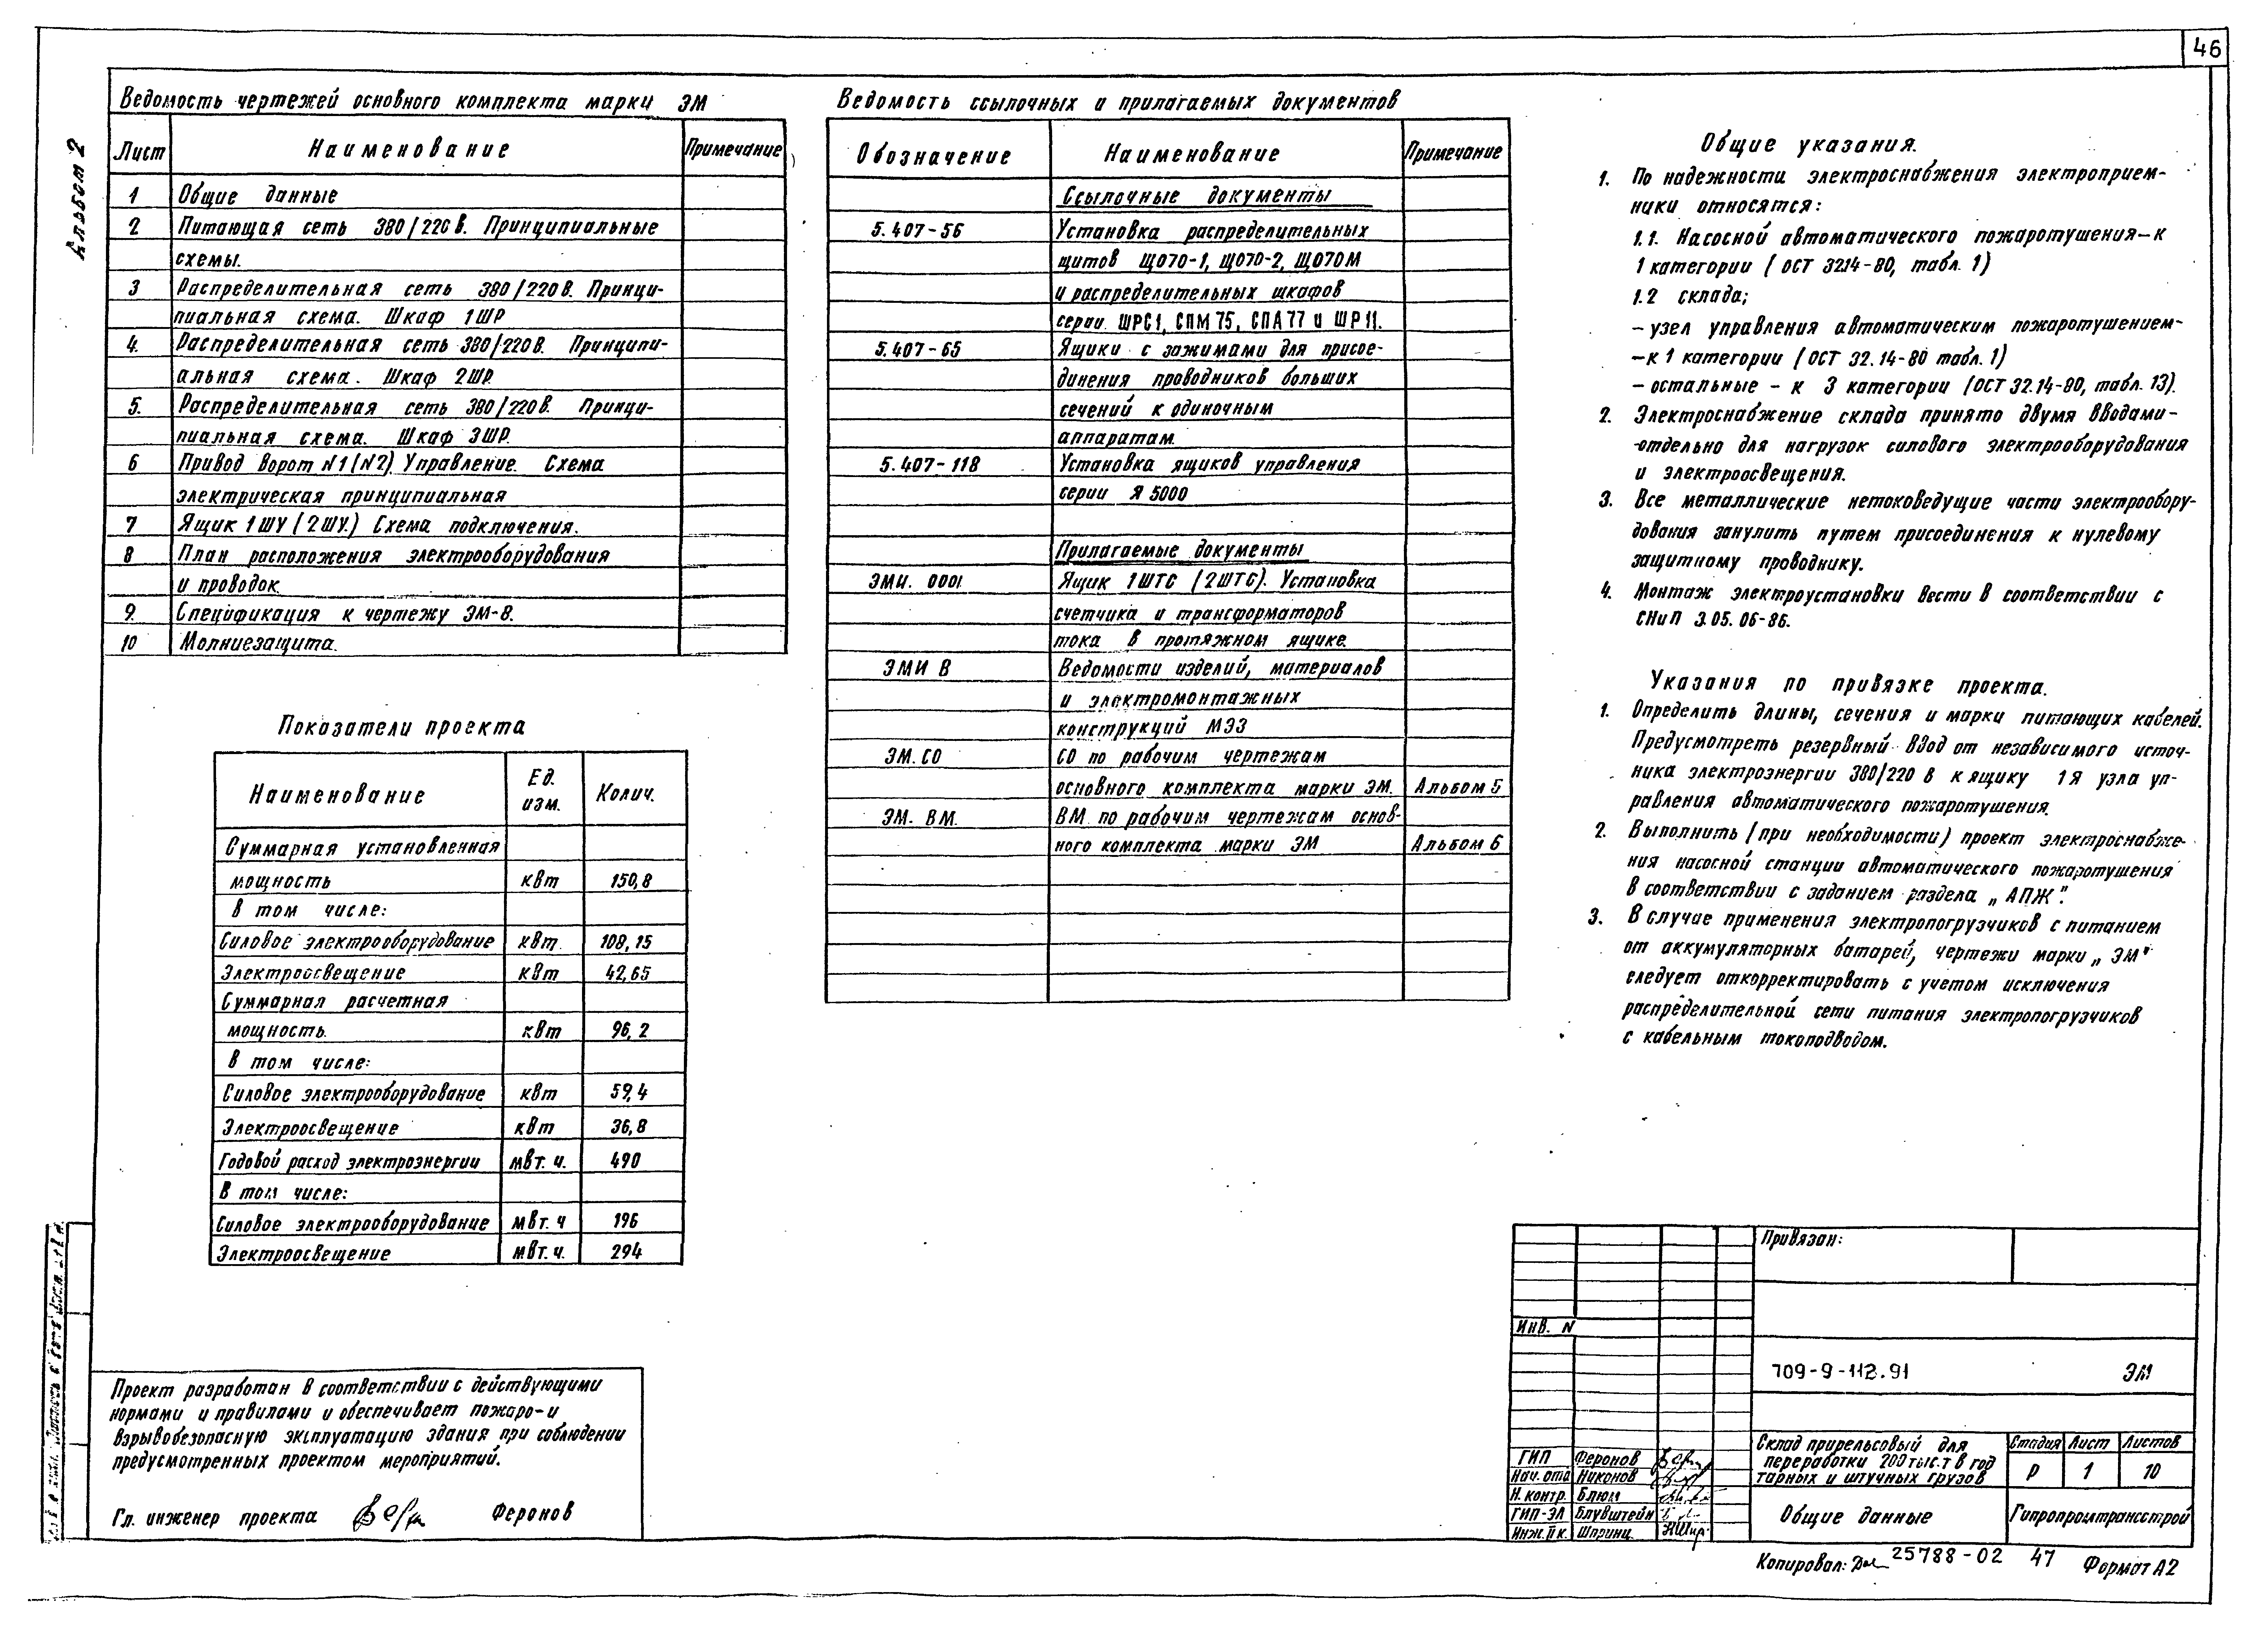 46
Альбом 2
Ведомость чертежей основного комплекта марки ЭМ
Лист Наименование Примечание
1 Общие данные
2 Питающая сеть 380/220 В. Принципиальные
схемы.
3 Распределительная сеть 380/220 В. Принци-
пиальная схема. Шкаф 1ШР
4. Распределительная сеть 380/220 В. Принципи-
альная схема. Шкаф 2ШР.
5. Распределительная сеть 380/220 В. Принци-
пиальная схема. Шкаф 3ШР.
6 Привод ворот N1 (N2) Управление. Схема
электрическая принципиальная
7 Ящик 1ШУ (2ШУ.) Схема подключения.
8 План расположения электрооборудования
и проводок.
9. Спецификация к чертежу ЭМ-8.
10 Молниезащита.
Показатели проекта
Наименование Ед. изм. Колич.
Суммарная установленная
мощность квт 150,8
в том числе:
Силовое электрооборудование квт. 108,15
Электроосвещение квт 42,65
Суммарная расчетная
мощность. квт 96,2
в том числе:
Силовое электрооборудование квт 59,4
Электроосвещение квт 36,8
Годовой расход электроэнергии мвт. ч. 490
в том числе:
Силовое электрооборудование мвт. ч 196
Электроосвещение мвт. ч. 294
Проект разработан в соответствии с действующими
нормами и правилами и обеспечивает пожаро- и
взрывобезопасную эксплуатацию здания при соблюдении
предусмотренных проектом мероприятий.
Гл. инженер проекта Феронов
Ведомость ссылочных и прилагаемых документов
Обозначение Наименование Примечание
Ссылочные документы
5.407-56 Установка распределительных
щитов ЩО70-1, ЩО70-2, ЩО70М
и распределительных шкафов
серии ШРС1, СПМ75, СПА77 и ШР11.
5.407-65 Ящики с зажимами для присое-
динения проводников больших
сечений к одиночным
аппаратам.
5.407-118 Установка ящиков управления
серии Я 5000
Прилагаемые документы
ЭМИ. 0001. Ящик 1ШТС (2ШТС). Установка
счетчика и трансформаторов
тока в протяжном ящике.
ЭМИ В Ведомости изделий, материалов
и электромонтажных
конструкций МЭЗ
ЭМ. СО СО по рабочим чертежам
основного комплекта марки ЭМ. Альбом 5
ЭМ. ВМ. ВМ по рабочим чертежам основ-
ного комплекта марки ЭМ Альбом 6
Общие указания.
1. По надежности электроснабжения электроприем-
ники относятся:
1.1. Насосной автоматического пожаротушения-к
1 категории (ОСТ 32.14-80, табл. 1)
1.2 склада;
- узел управления автоматическим пожаротушением-
-к 1 категории (ОСТ 32.14-80 табл. 1)
- остальные - к 3 категории (ОСТ 32.14-80, табл. 13).
2. Электроснабжение склада принято двумя вводами-
-отдельно для нагрузок силового электрооборудования
и электроосвещения.
3. Все металлические нетоковедущие части электрообору-
дования занулить путем присоединения к нулевому
защитному проводнику.
4. Монтаж электроустановки вести в соответствии с
СНиП 3.05.06-86.
Указания по привязке проекта.
1. Определить длины, сечения и марки питающих кабелей.
Предусмотреть резервный ввод от независимого источ-
ника электроэнергии 380/220 в к ящику 1Я узла уп-
равления автоматического пожаротушения.
2. Выполнить (при необходимости) проект электроснабже-
ния насосной станции автоматического пожаротушения
в соответствии с заданием раздела „АПЖ".
3. В случае применения электропогрузчиков с питанием
от аккумуляторных батарей, чертежи марки „ЭМ"
следует откорректировать с учетом исключения
распределительной сети питания электропогрузчиков
с кабельным токоподводом.
Привязан:
Инв. N
709-9-112.91 ЭМ
ГИП Феронов
Нач. отд Никонов
Н. контр. Блюм
ГИП-ЭЛ Блувштейн
Инж. II к. Шпринц.
Склад прирельсовый для
переработки 200 тыс. т в год
тарных и штучных грузов
Стадия Лист Листов
Р 1 10
Общие данные
Гипропромтрансстрой
Копировал: 25788-02 47 Формат А2